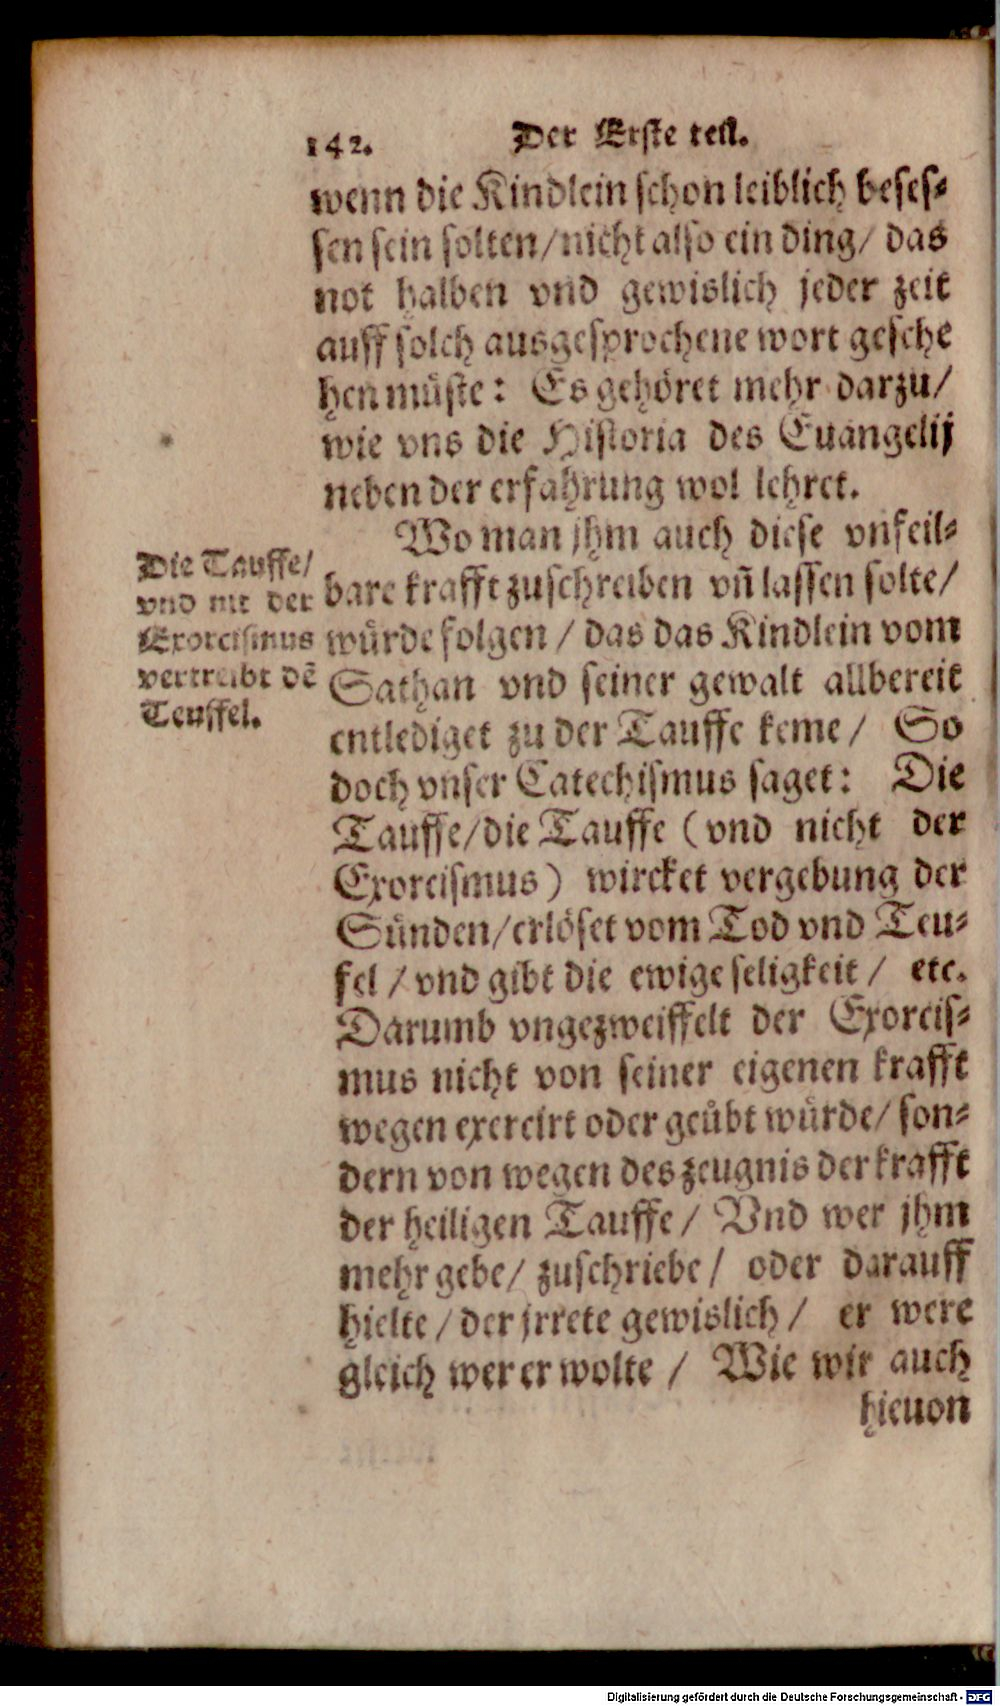 142. Der Erste teil.
wenn die Kindlein schon leiblich beses-
sen sein solten/nicht also ein ding/ das
not halben vnd gewislich jeder zeit
auff solch ausgesprochene wort gesche
hen müste: Es gehöret mehr darzu/
wie vns die Historia des Euangelij
neben der erfahrung wol lehret.
Wo man jhm auch diese vnfeil-
bare krafft zuschreiben vñ lassen solte/
würde folgen / das das Kindlein vom
Sathan vnd seiner gewalt allbereit
entlediget zu der Tauffe keme / So
doch vnser Catechismus saget: Die
Tauffe/die Tauffe (vnd nicht der
Exorcismus) wircket vergebung der
Sünden/erlöset vom Tod vnd Teu-
fel / vnd gibt die ewige seligkeit / etc.
Darumb vngezweiffelt der Exorcis-
mus nicht von seiner eigenen krafft
wegen exercirt oder geübt würde/ son-
dern von wegen des zeugnis der krafft
der heiligen Tauffe / Vnd wer jhm
mehr gebe/ zuschriebe / oder darauff
hielte / der jrrete gewislich / er were
gleich wer er wolte / Wie wir auch
hieuon
Die Tauffe/
vnd nit der
Exorcismus
vertreibt dē
Teuffel.
Digitalisierung gefördert durch die Deutsche Forschungsgemeinschaft - DFG